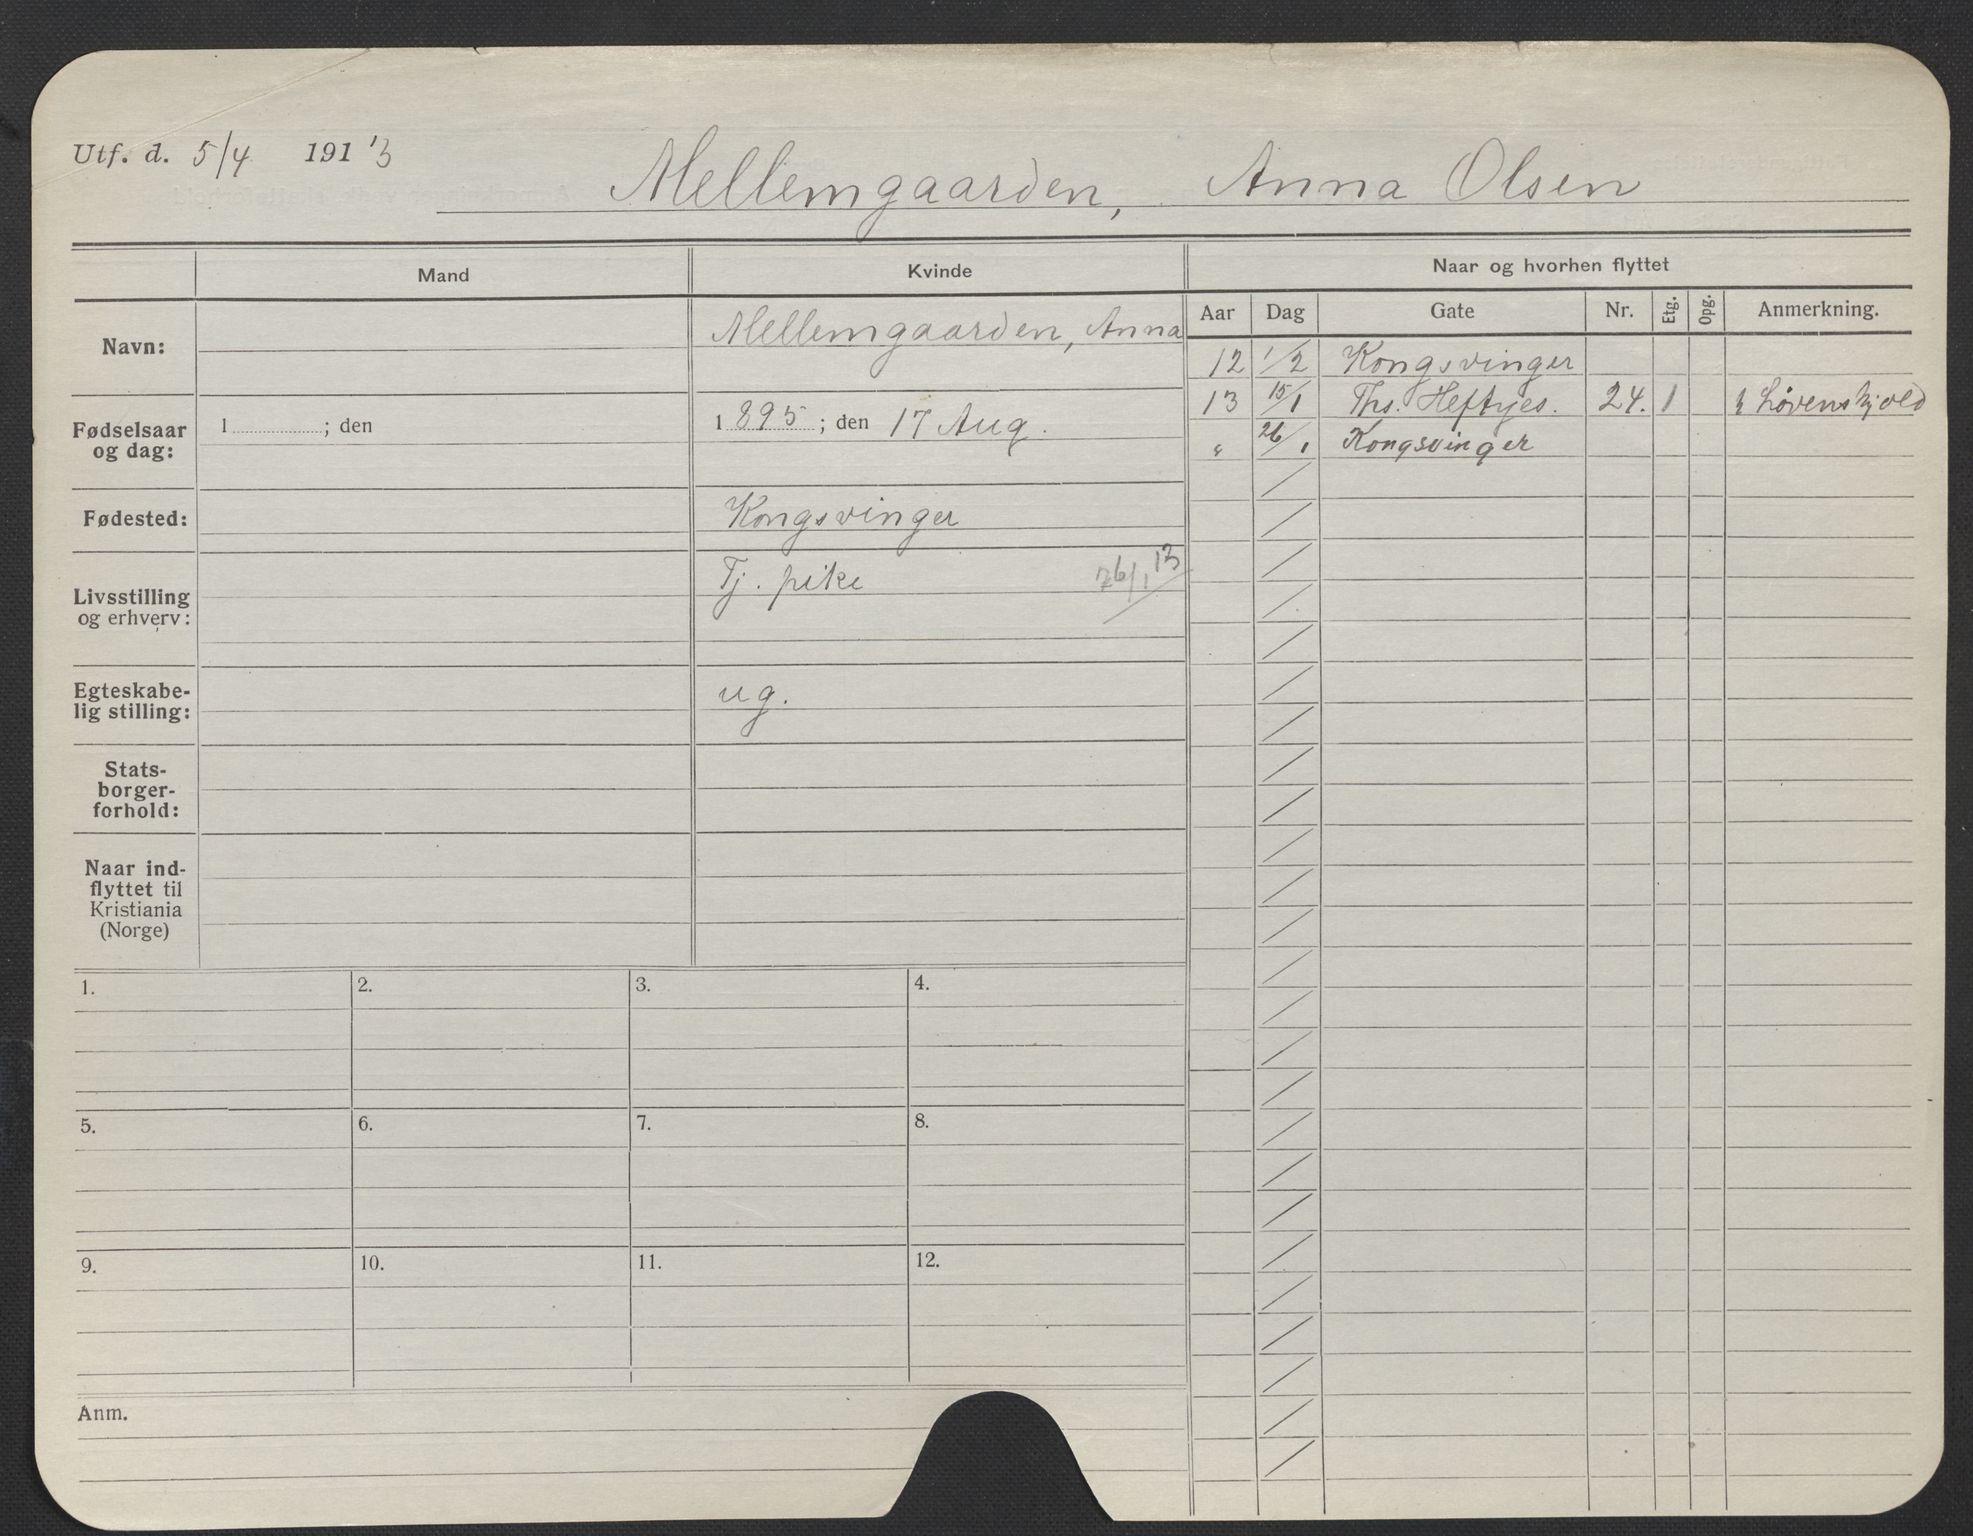 Utf. d. 5/4 1913
Mellemgaarden, Anna Olsen
Mand
Kvinde
Naar og hvorhen flyttet
Aar Dag Gate Nr. Etg. Opg. Anmerkning.
Navn:
Mellemgaarden, Anna
12 1/2 Kongsvinger
13 15/1 Ths. Heftyes. 24. 1 Løvenskjold
Fødselsaar
og dag:
1 ; den
1895 ; den 17 Aug.
" 26/1 Kongsvinger
Fødested:
Kongsvinger
Livsstilling
og erhverv:
Tj. pike 26/1 13
Egteskabe-
lig stilling:
ug.
Stats-
borger-
forhold:
Naar ind-
flyttet til
Kristiania
(Norge)
1. 2. 3. 4.
5. 6. 7. 8.
9. 10. 11. 12.
Anm.